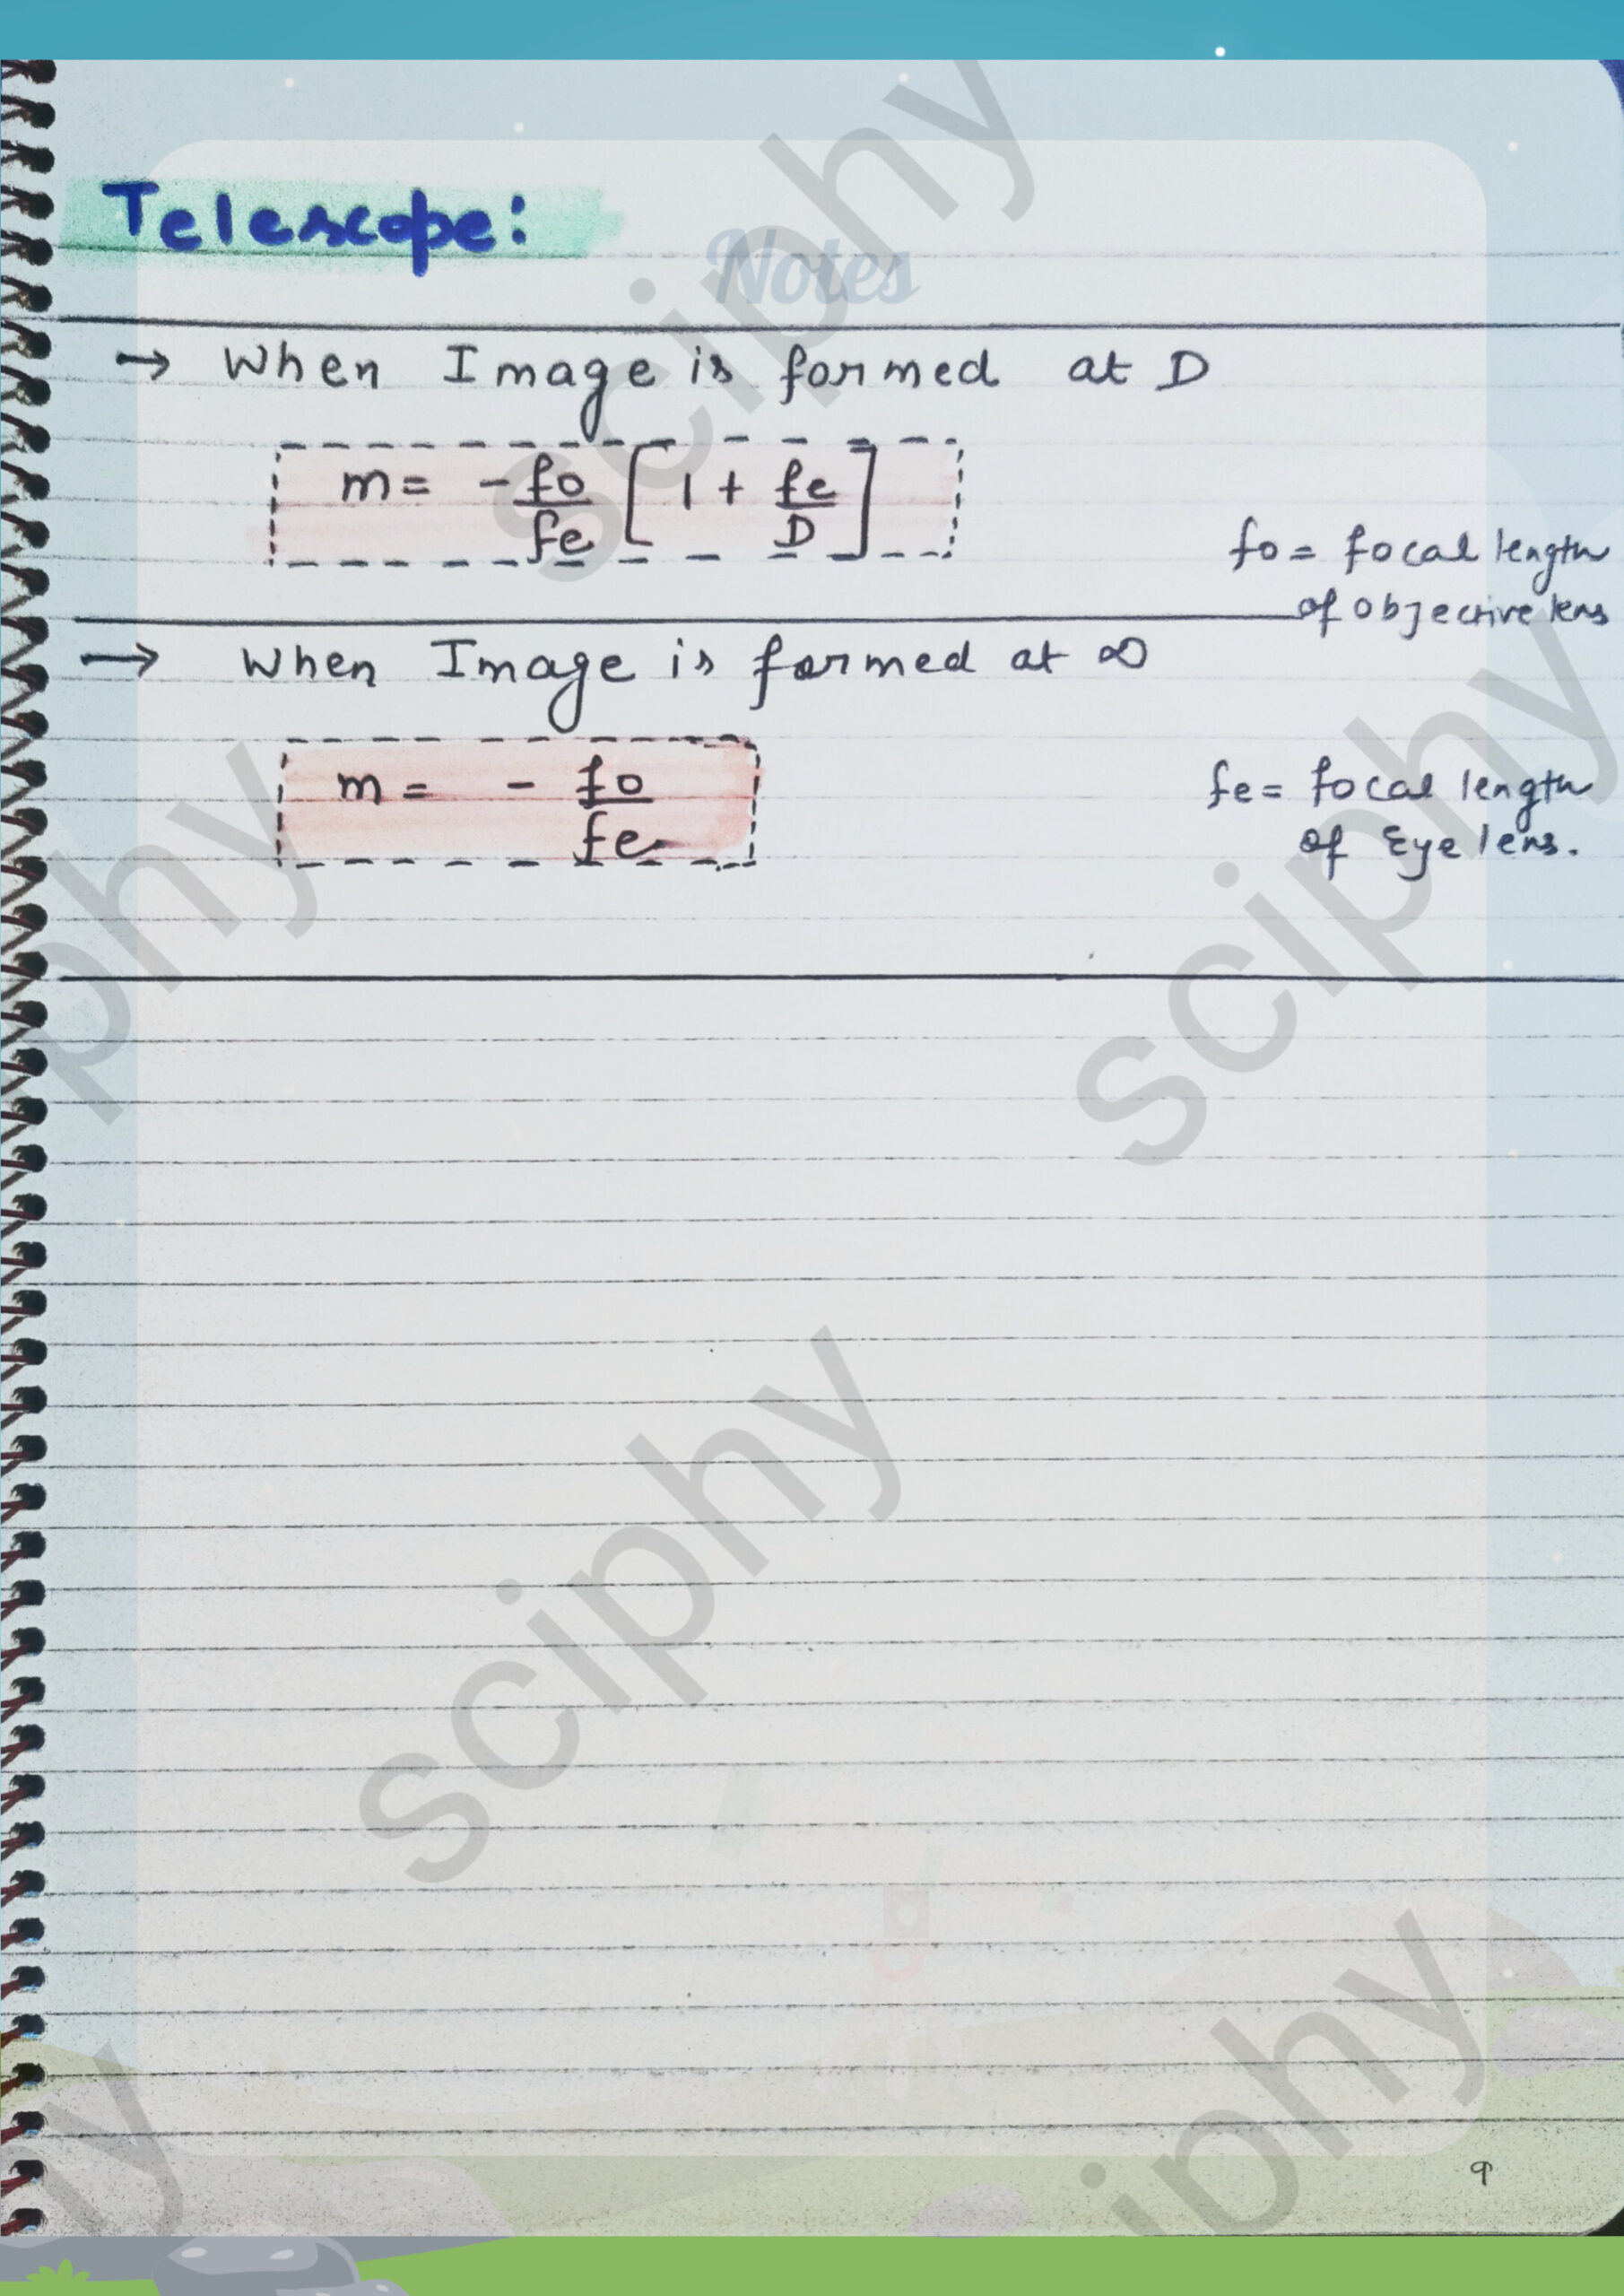 Telescope:
Notes
→ When Image is formed at D
m = - fo/fe [1 + fe/D]
fo = focal length
of objective lens
→ When Image is formed at ∞
m = - fo/fe
fe = focal length
of Eye lens.
sciphy
sciphy
phy
sciphy
iphy
hy
9